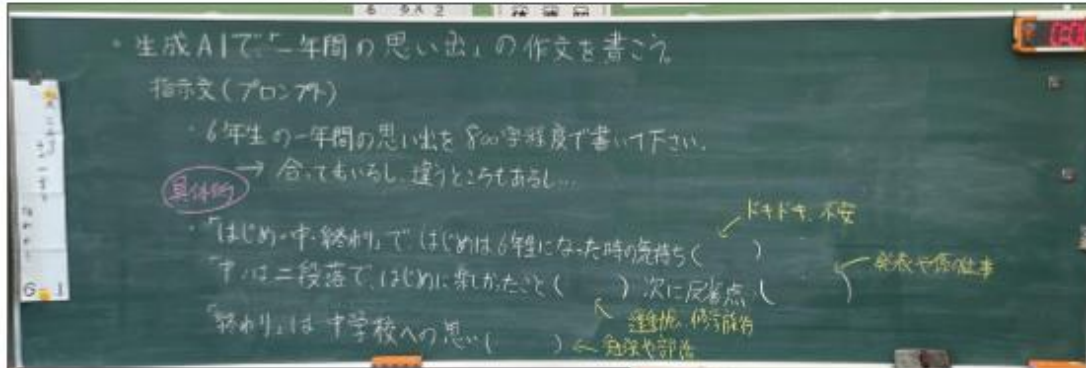 ・生成AIで「一年間の思い出」の作文を書こう。
指示文(プロンプト)
・6年生の一年間の思い出を800字程度で書いて下さい。
→ 合ってもいるし、違うところもあるし…
具体的
・「はじめ・中・終わり」で はじめは6年生になった時の気持ち(　　)
ドキドキ、不安
「中」は二段落で、はじめに楽しかったこと(　　) 次に反省点(　　)
← 発表や係の仕事
運動会、修学旅行
「終わり」は中学校への思い(　　)
← 勉強や部活